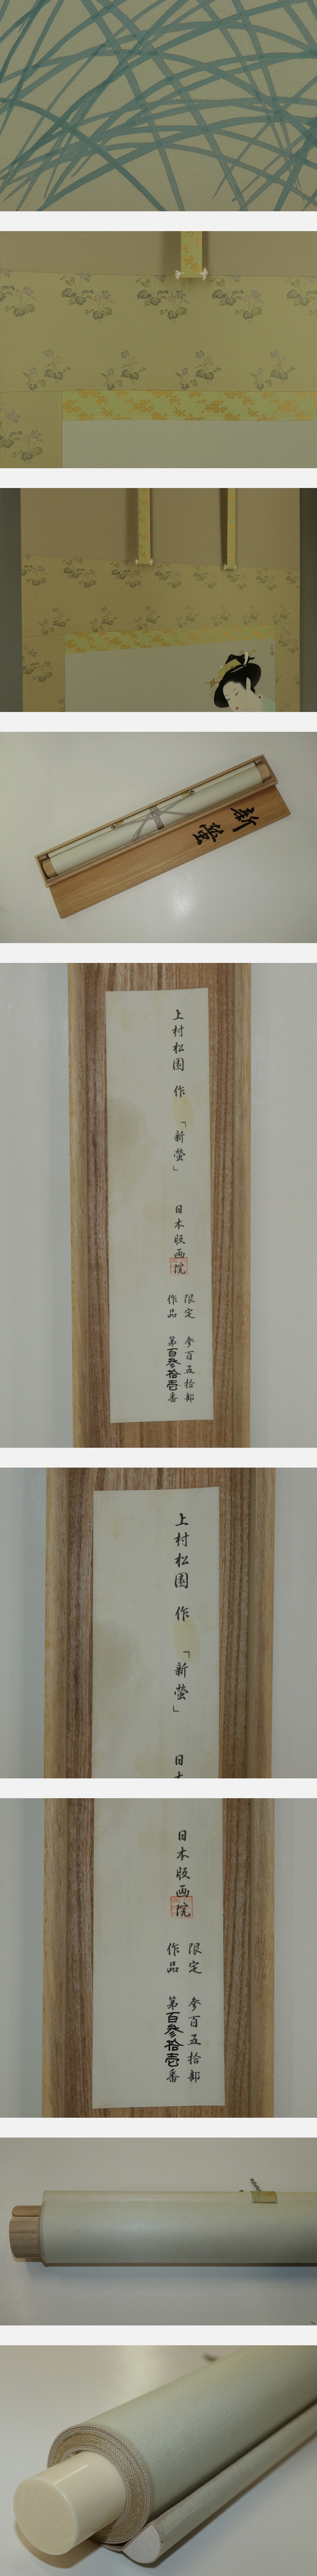 新
螢
上村松園 作
「新螢」
日本版画院
限定 参百五拾部
作品 第百参拾壱番
上村松園 作
「新螢」
日本
日本版画院
限定 参百五拾部
作品 第百参拾壱番